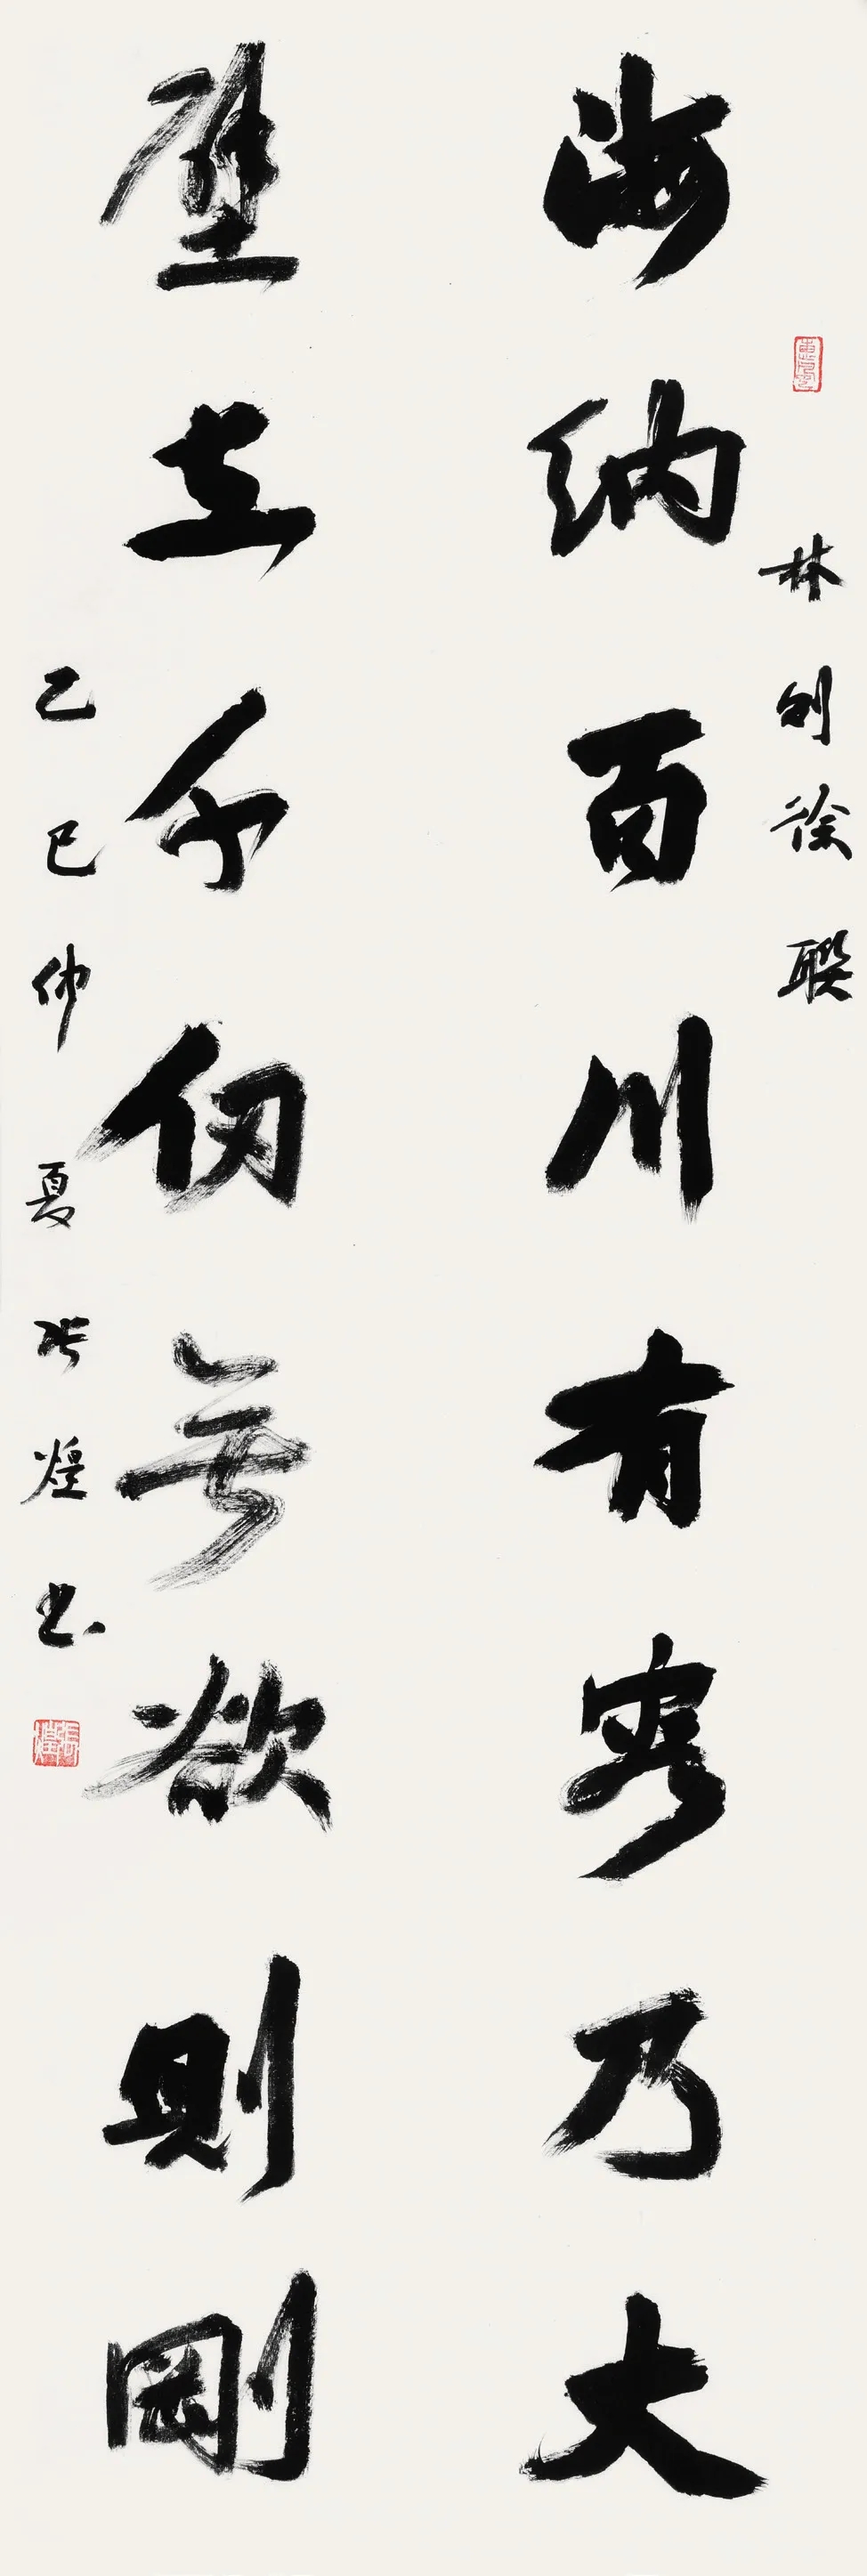 海納百川有容乃大
林則徐聯
壁立千仞無欲則剛
乙巳仲夏張煌書
張煌